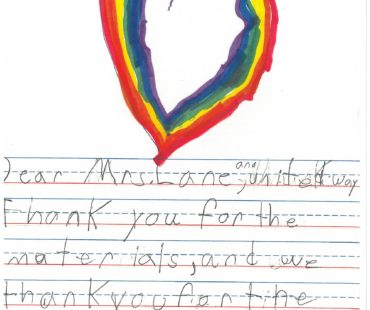 Dear Mrs. Lane, and united way
Thank you for the
materials, and we
thank you for the